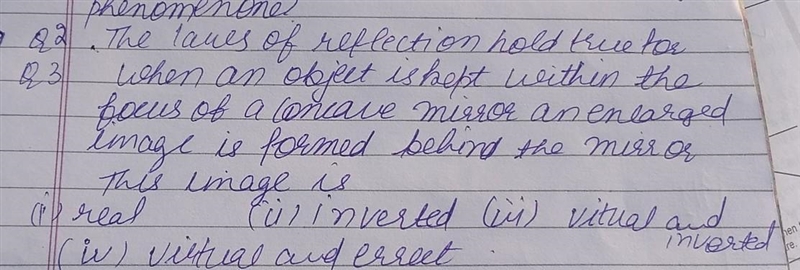 phenomenone?
Q2 . The laws of reflection hold true for
Q3 when an object is kept within the
focus of a concave mirror an enlarged
image is formed behind the mirror
This image is
(i) real (ii) inverted (iii) vitual and inverted
(iv) virtual and erect .